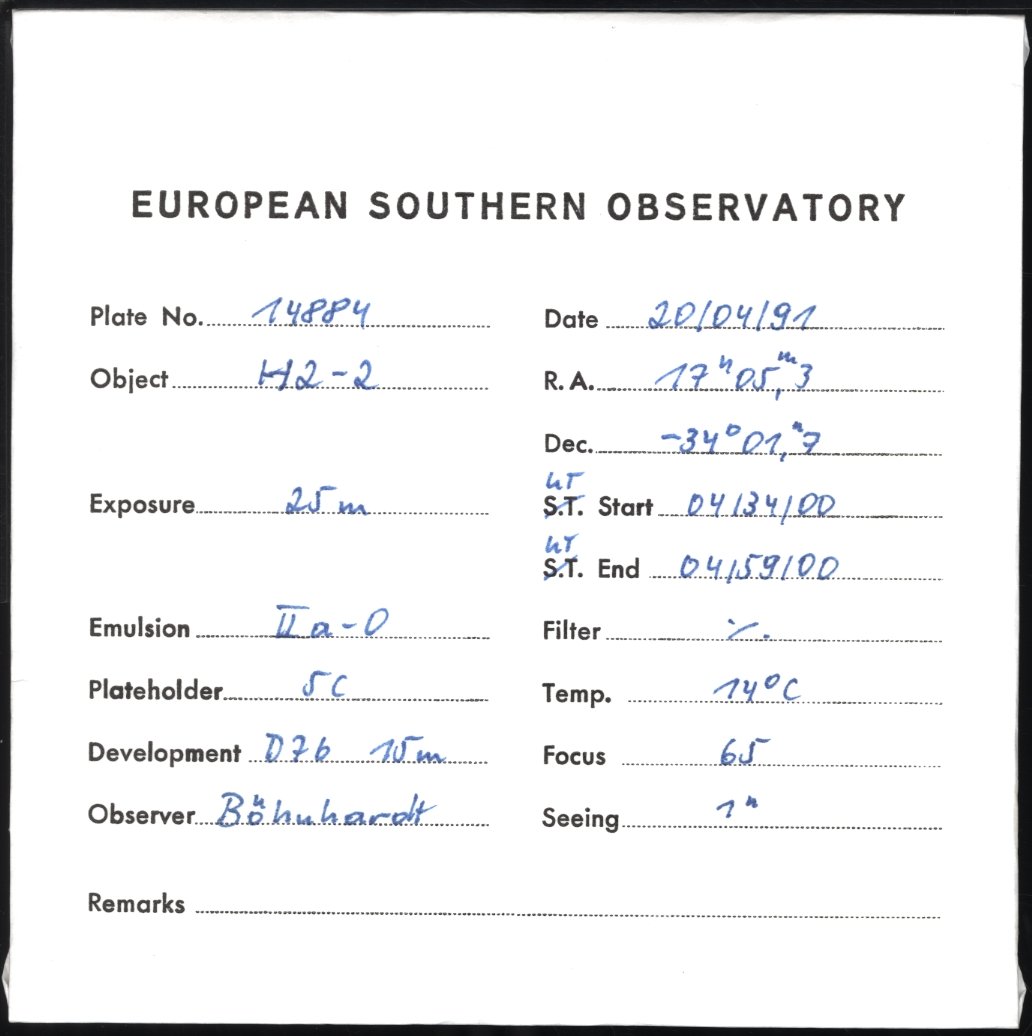 EUROPEAN SOUTHERN OBSERVATORY
Plate No. 14884 Date 20/04/91
Object H2-2 R.A. 17ʰ05,ᵐ3
Dec. -34°01,"7
UT
Exposure 25m S.T. Start 04/34/00
UT
S.T. End 04/59/00
Emulsion IIa-O Filter ⁒
Plateholder 5C Temp. 14°C
Development D76 15m Focus 65
Observer Böhnhardt Seeing 1"
Remarks